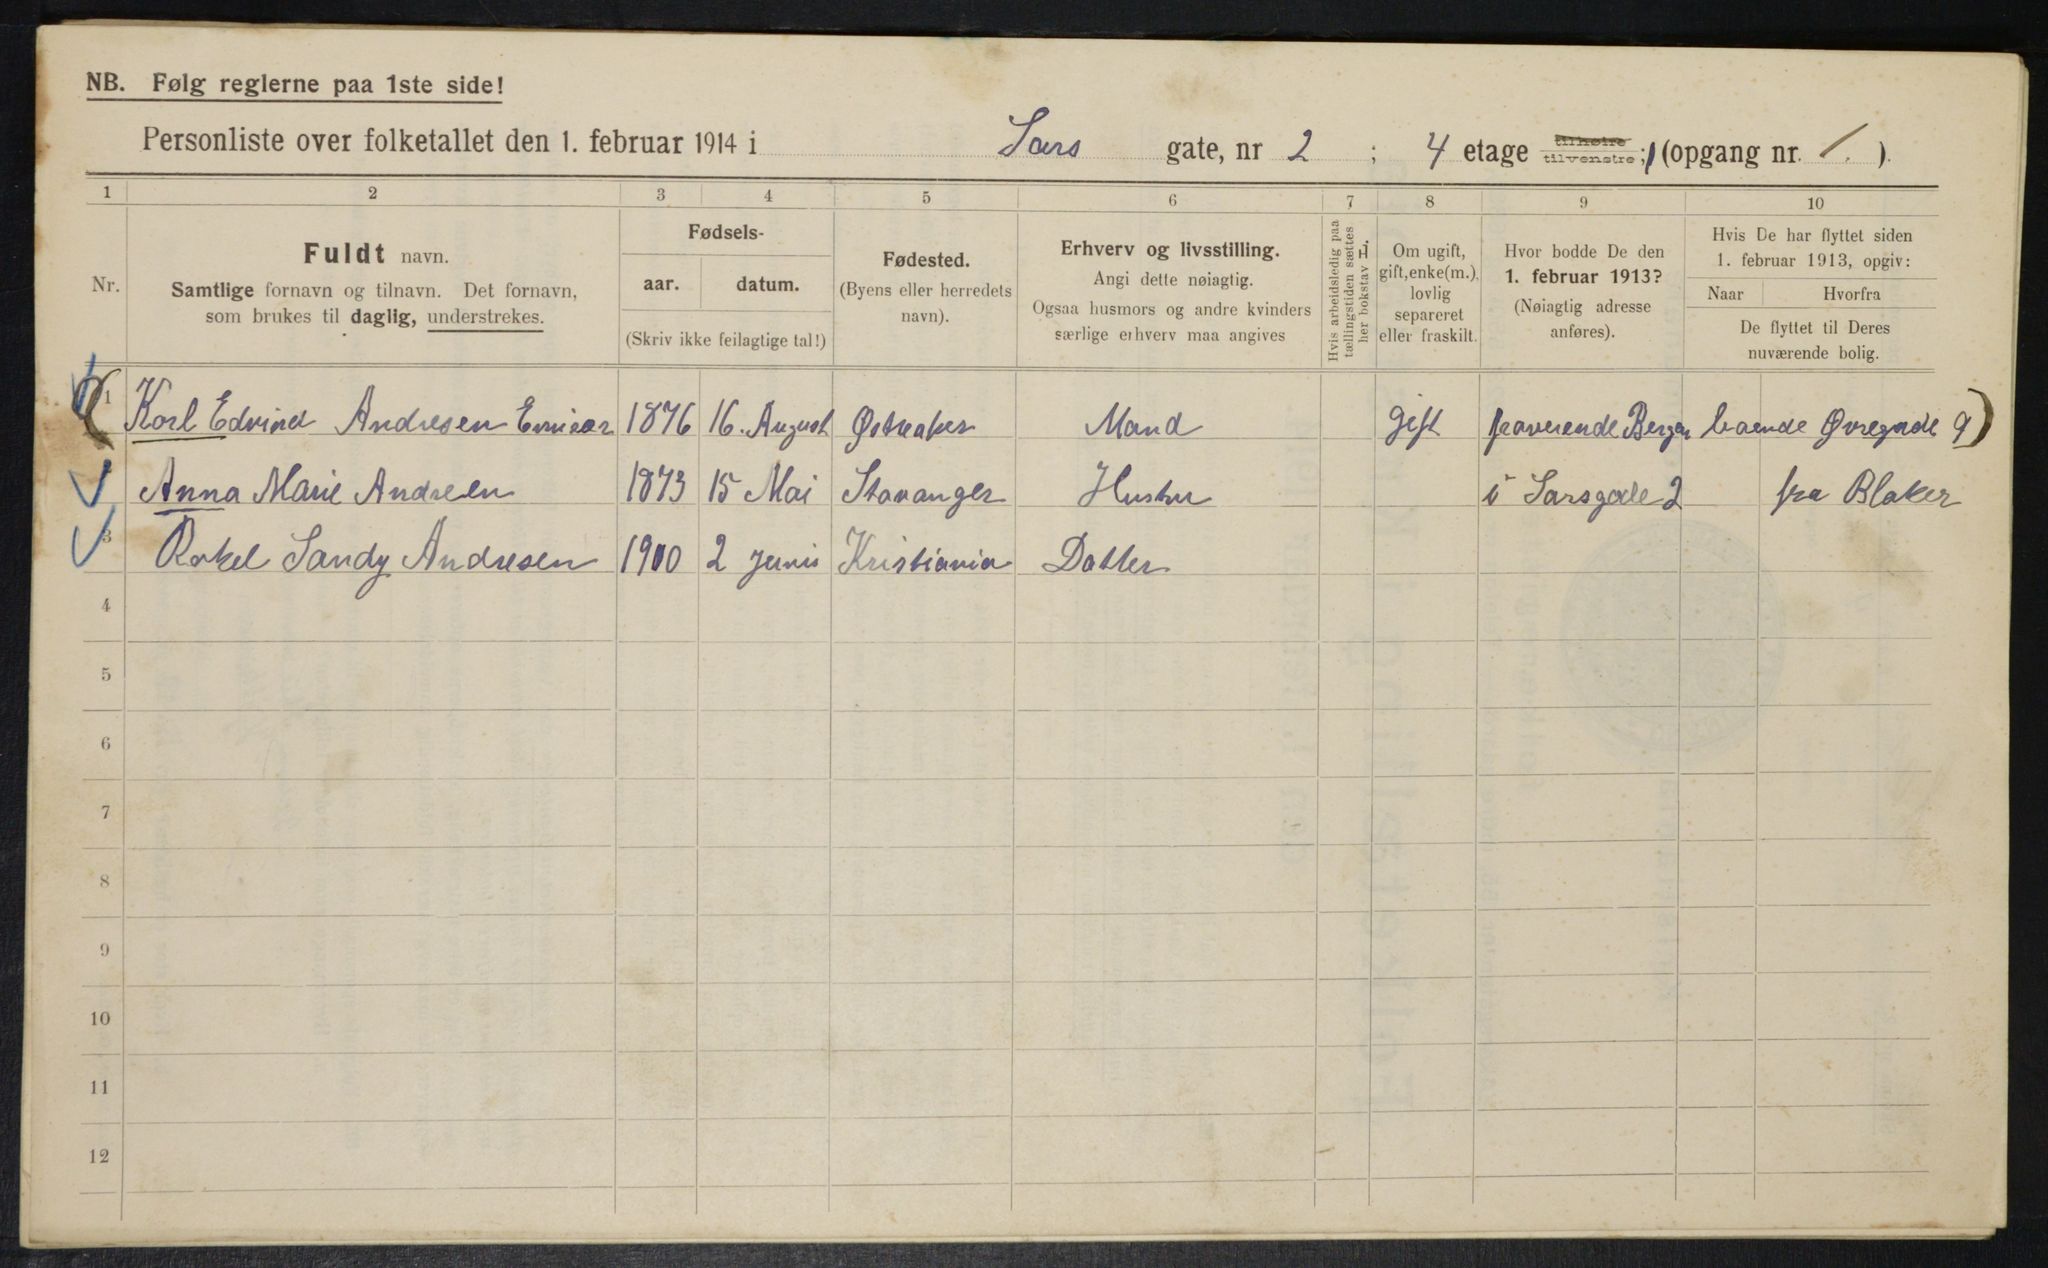 NB. Følg reglerne paa 1ste side!
Personliste over folketallet den 1. februar 1914 i Sars gate, nr 2 ; 4 etage tilhøire tilvenstre; (opgang nr. 1. ).
1 2 3 4 5 6 7 8 9 10
Nr.
Fuldt navn.
Samtlige fornavn og tilnavn. Det fornavn,
som brukes til daglig, understrekes.
Fødsels-
aar. datum.
(Skriv ikke feilagtige tal!)
Fødested.
(Byens eller herredets
navn).
Erhverv og livsstilling.
Angi dette nøiagtig.
Ogsaa husmors og andre kvinders
særlige erhverv maa angives
Hvis arbeidsledig paa
tællingstiden sættes
her bokstav L.
Om ugift,
gift, enke(m.),
lovlig
separeret
eller fraskilt.
Hvor bodde De den
1. februar 1913?
(Nøiagtig adresse
anføres).
Hvis De har flyttet siden
1. februar 1913, opgiv:
Naar Hvorfra
De flyttet til Deres
nuværende bolig.
1 Karl Edvind Andresen 1876 16. August Østreaker Mand gift fraverende Bergen boende Øvregade 9
Anna Marie Andresen 1873 15 Mai Stavanger Hustru i Sarsgade 2 fra Blaker
3 Rakel Sandy Andresen 1900 2 Juni Kristiania Datter
4
5
6
7
8
9
10
11
12